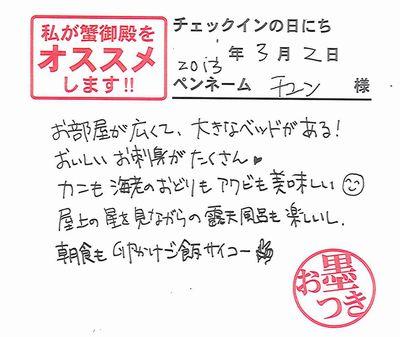 私が蟹御殿を
オススメ
します!!
チェックインの日にち
2013年3月2日
ペンネーム チュン 様
お部屋が広くて、大きなベッドがある！
おいしいお刺身がたくさん♥
カニも海老のおどりもアワビも美味しい☺
屋上の星を見ながらの露天風呂も楽しいし、
朝食も卵かけご飯サイコー
お墨つき